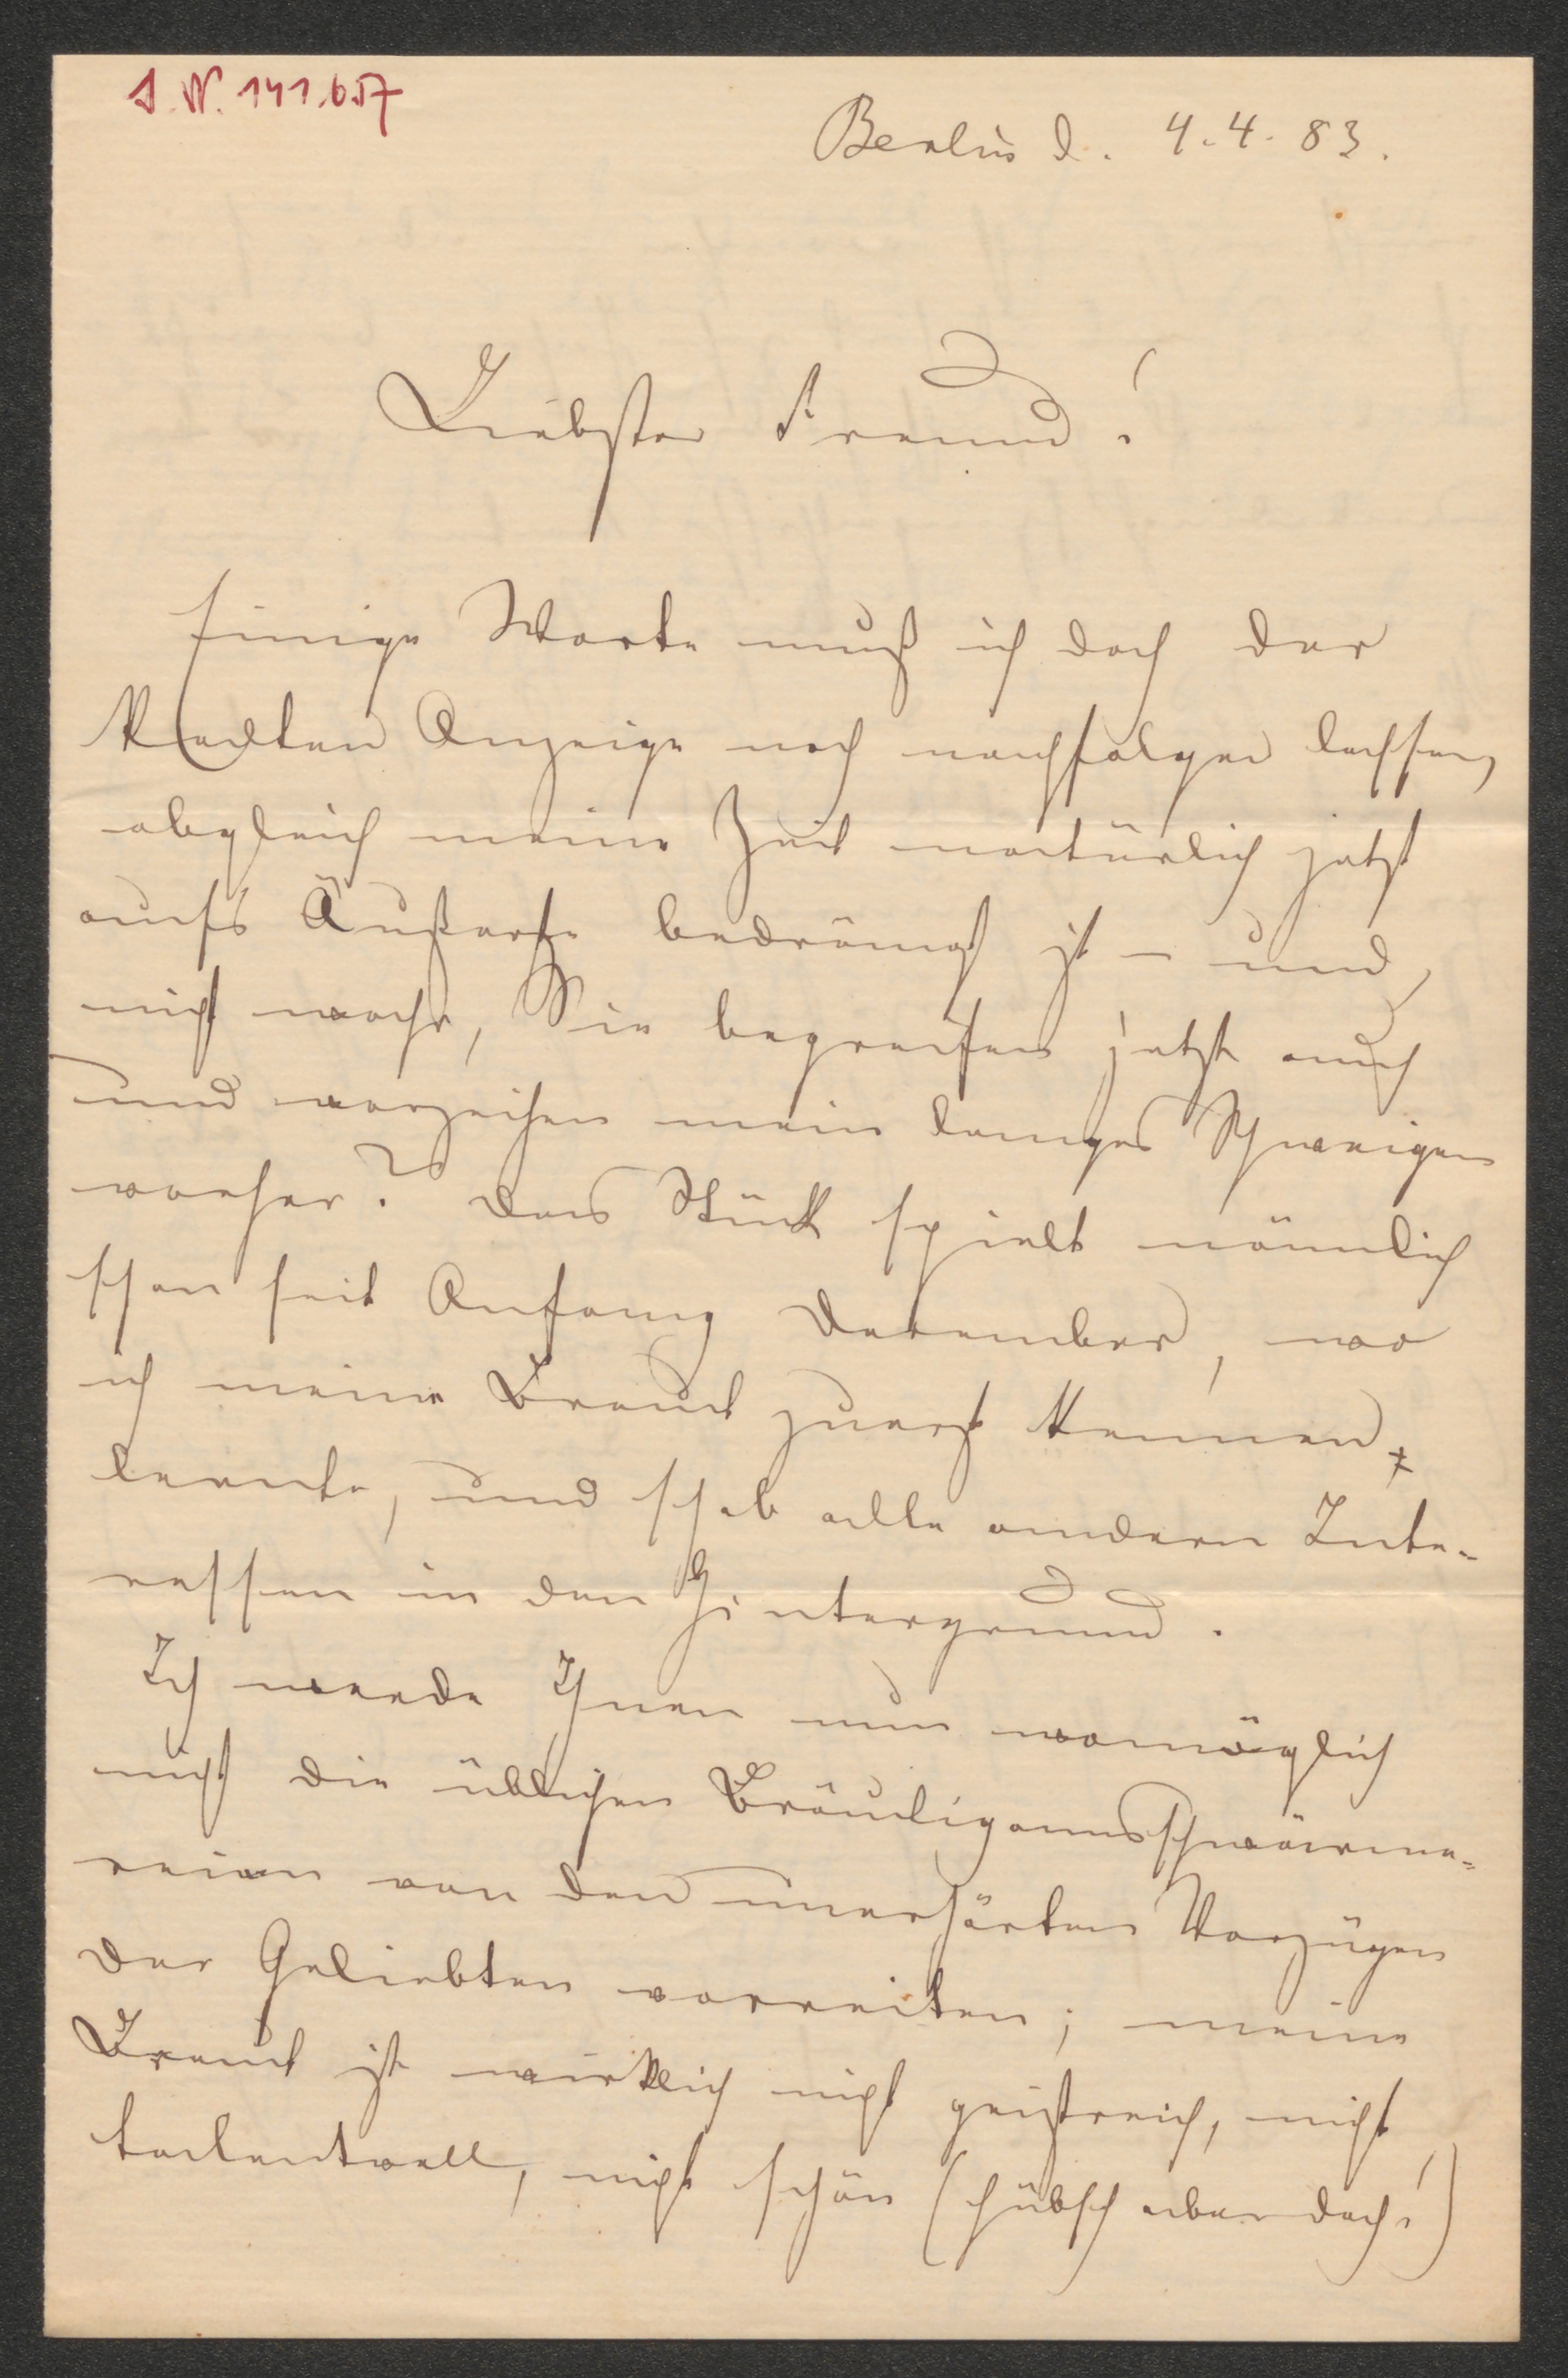 I. N. 141.657
Berlin d. 4. 4. 83.
Liebster Freund!
Einige Worte muß ich doch der
kalten Anzeige noch nachfolgen lassen,
obgleich meine Zeit natürlich jetzt
aufs Äußerste bedrängt ist – und,
nicht wahr, Sie begreifen jetzt auch
und verzeihen mein langes Schweigen
vorher? Das Stück spielt nämlich
schon seit Anfang December, wo
ich meine Braut zuerst kennen
lernte, und schob alle andern Inte-
ressen in den Hintergrund.
Ich werde Ihnen nun womöglich
nicht die üblichen Bräutigamsschwärme-
reien von den unerhörten Vorzügen
der Geliebten vorreiten; meine
Braut ist wirklich nicht geistreich, nicht
talentvoll, nicht schön (hübsch aber doch!)